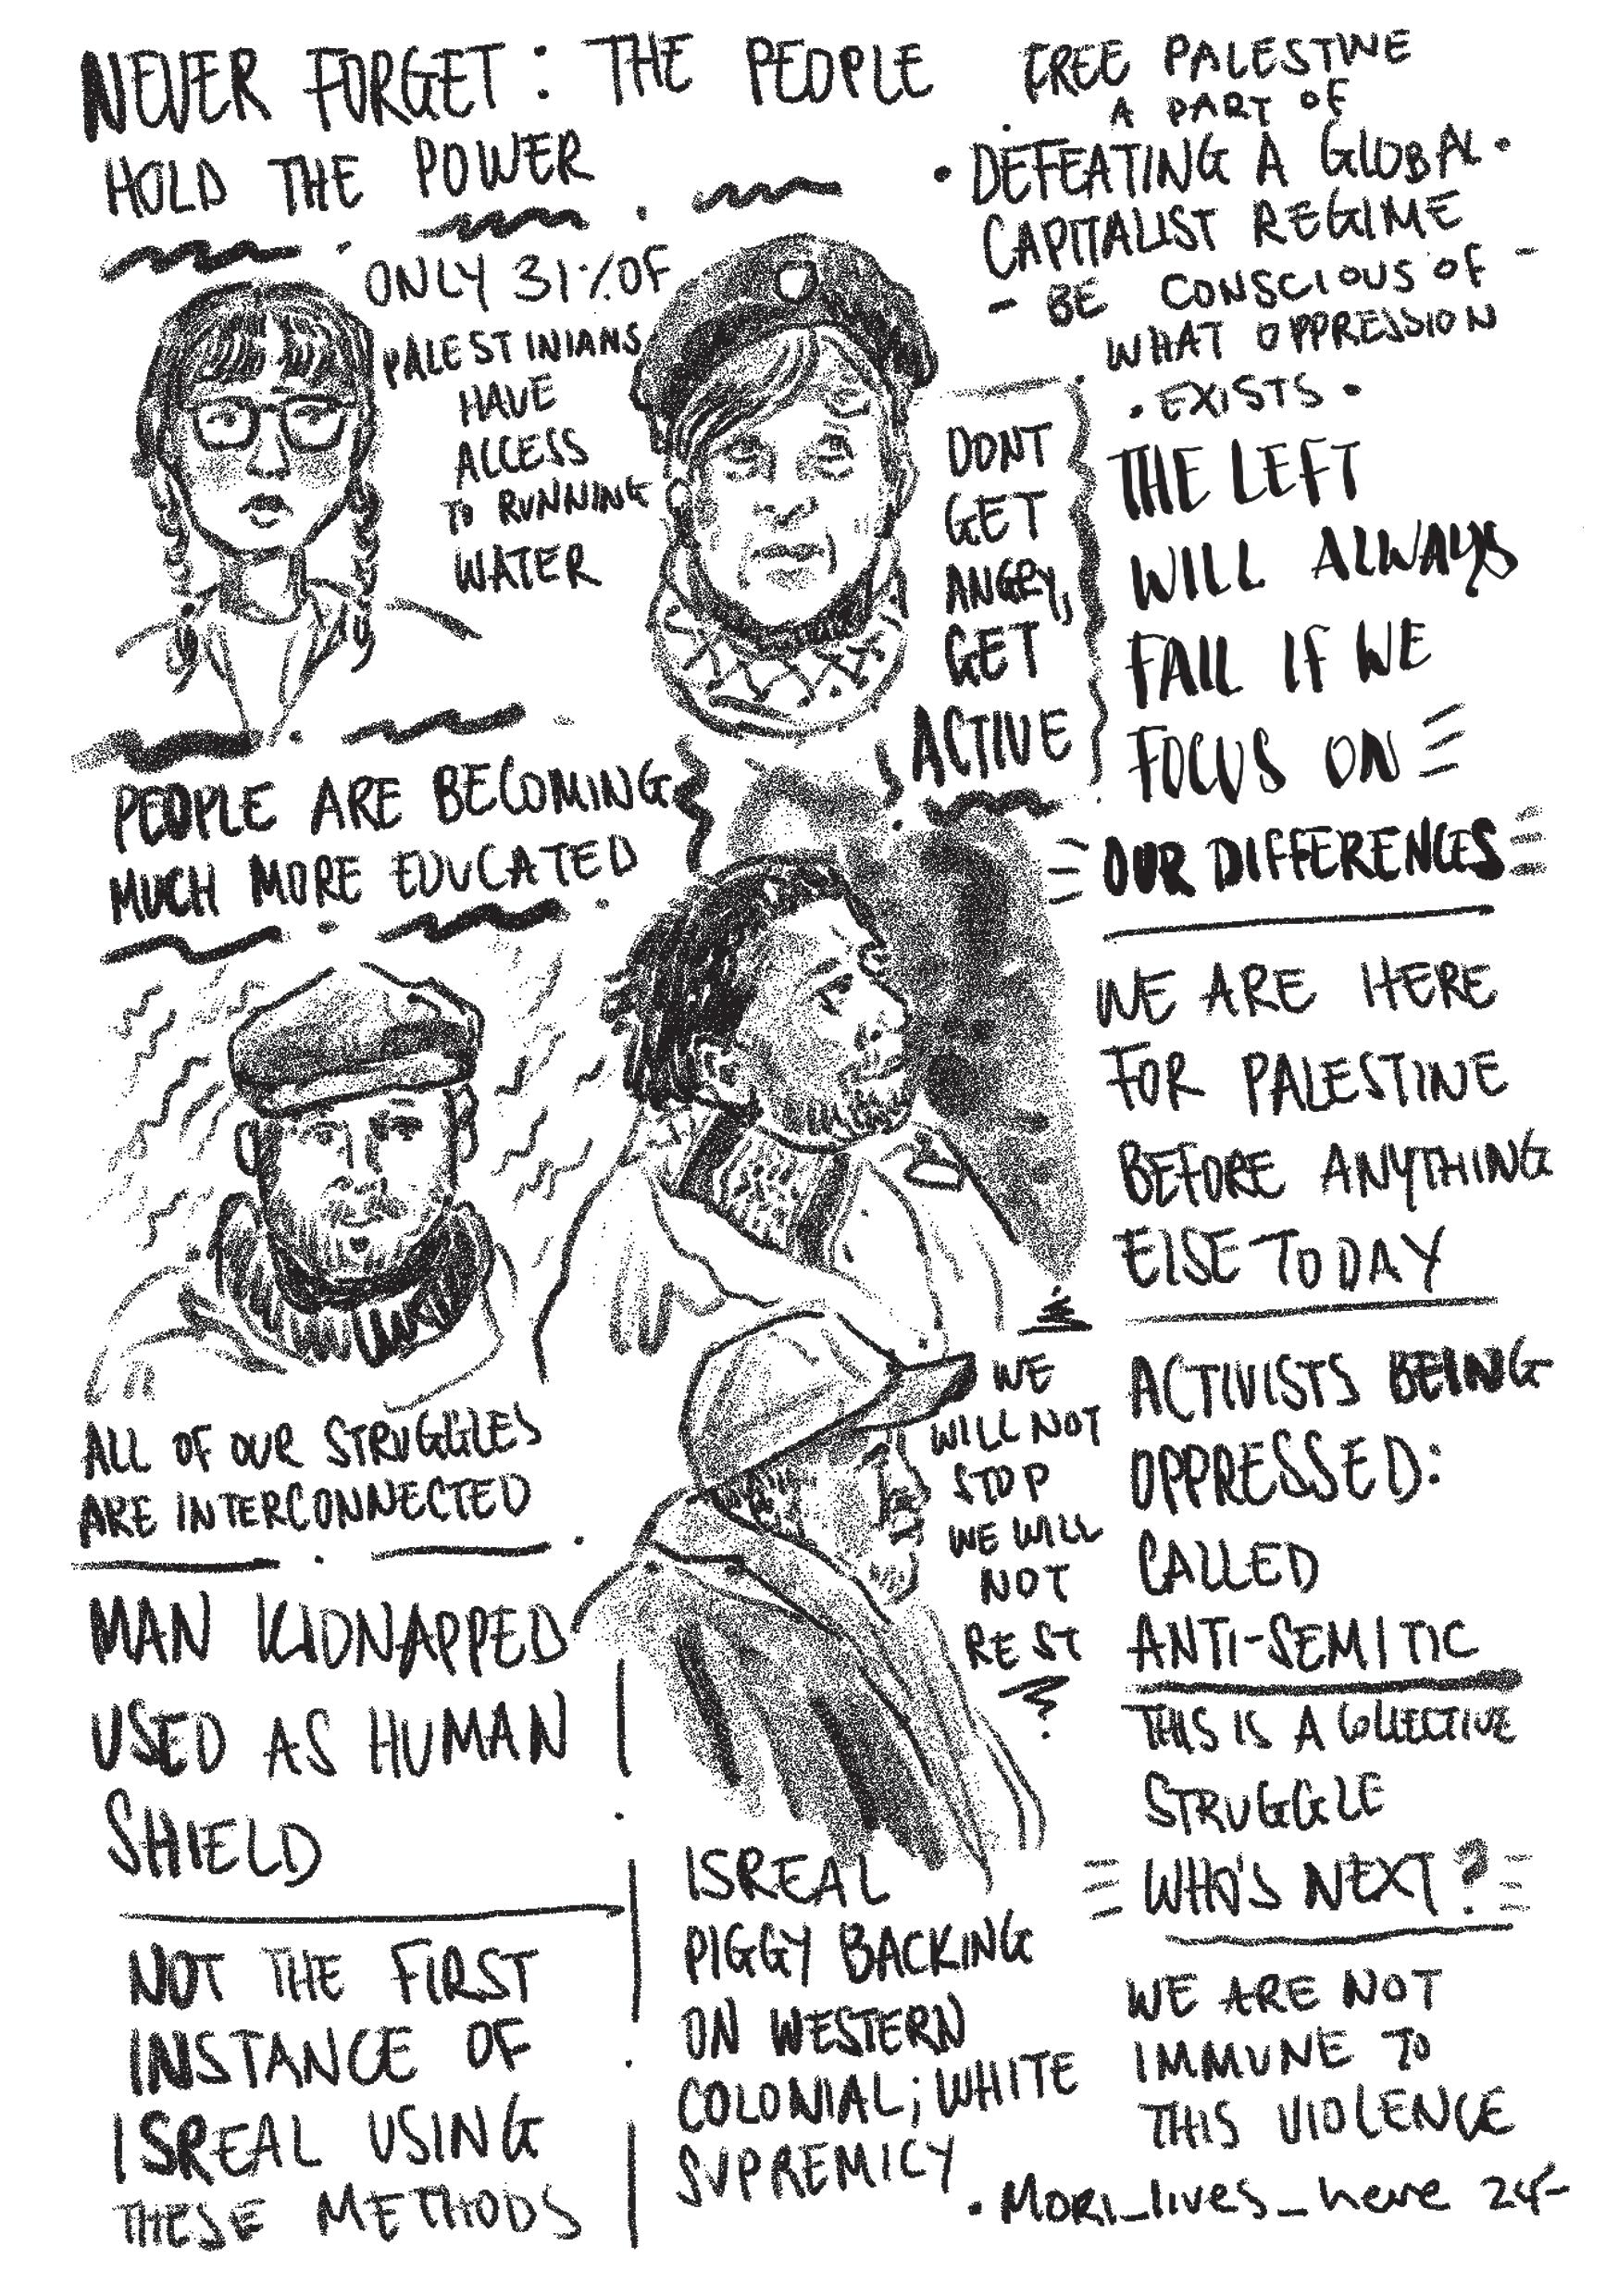 NEVER FORGET: THE PEOPLE
HOLD THE POWER
ONLY 31% OF
PALESTINIANS
HAVE
ACCESS
TO RUNNING
WATER
PEOPLE ARE BECOMING
MUCH MORE EDUCATED
ALL OF OUR STRUGGLES
ARE INTERCONNECTED
MAN KIDNAPPED
USED AS HUMAN
SHIELD
NOT THE FIRST
INSTANCE OF
ISREAL USING
THESE METHODS
DONT
GET
ANGRY,
GET
ACTIVE
WE
WILL NOT
STOP
WE WILL
NOT
REST
ISREAL
PIGGY BACKING
ON WESTERN
COLONIAL; WHITE
SUPREMICY
FREE PALESTINE
A PART OF
DEFEATING A GLOBAL
CAPITALIST REGIME
- BE CONSCIOUS OF -
WHAT OPPRESSION
• EXISTS •
THE LEFT
WILL ALWAYS
FAIL IF WE
FOCUS ON
OUR DIFFERENCES
WE ARE HERE
FOR PALESTINE
BEFORE ANYTHING
ELSE TODAY
ACTIVISTS BEING
OPPRESSED:
CALLED
ANTI-SEMITIC
THIS IS A COLLECTIVE
STRUGGLE
WHO'S NEXT?
WE ARE NOT
IMMUNE TO
THIS VIOLENCE
• MORI_lives_here 24-